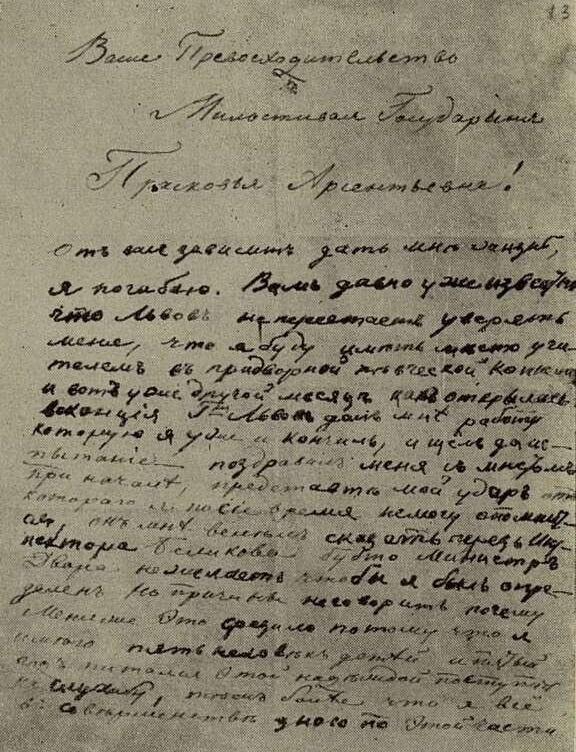 83
Ваше Превосходительство
Милостивая Государыня
Прасковья Арсентьевна!
Отъ васъ зависитъ дать мнѣ
я погибаю. Вамъ давно уже извѣстно
что Львовъ не перестаетъ увѣрять
меня, что я буду имѣть мѣсто учи-
телемъ въ придворной пѣвческой
и вотъ уже другой месяцъ какъ открылась
ваканція Гнъ Львовъ далъ мнѣ работу
которую я уже и кончилъ, и
пытаніе поздравилъ меня съ мѣстомъ
при началѣ, представте мой ударъ отъ
котораго и посіе время немогу опомнит-
ся, онъ мнѣ велѣлъ сказать черезъ Ин-
спектора Бѣликова будто Министръ
Двора нежелаетъ чтобы я былъ опре-
деленъ но причины неговоритъ почему
Меня это сразило потому что я
имѣю пять человѣкъ дѣтей и
годъ питался этой надеждой поступить
къ службѣ, тѣмъ болѣе что я всё
въ совершенствѣ знаю по этой части